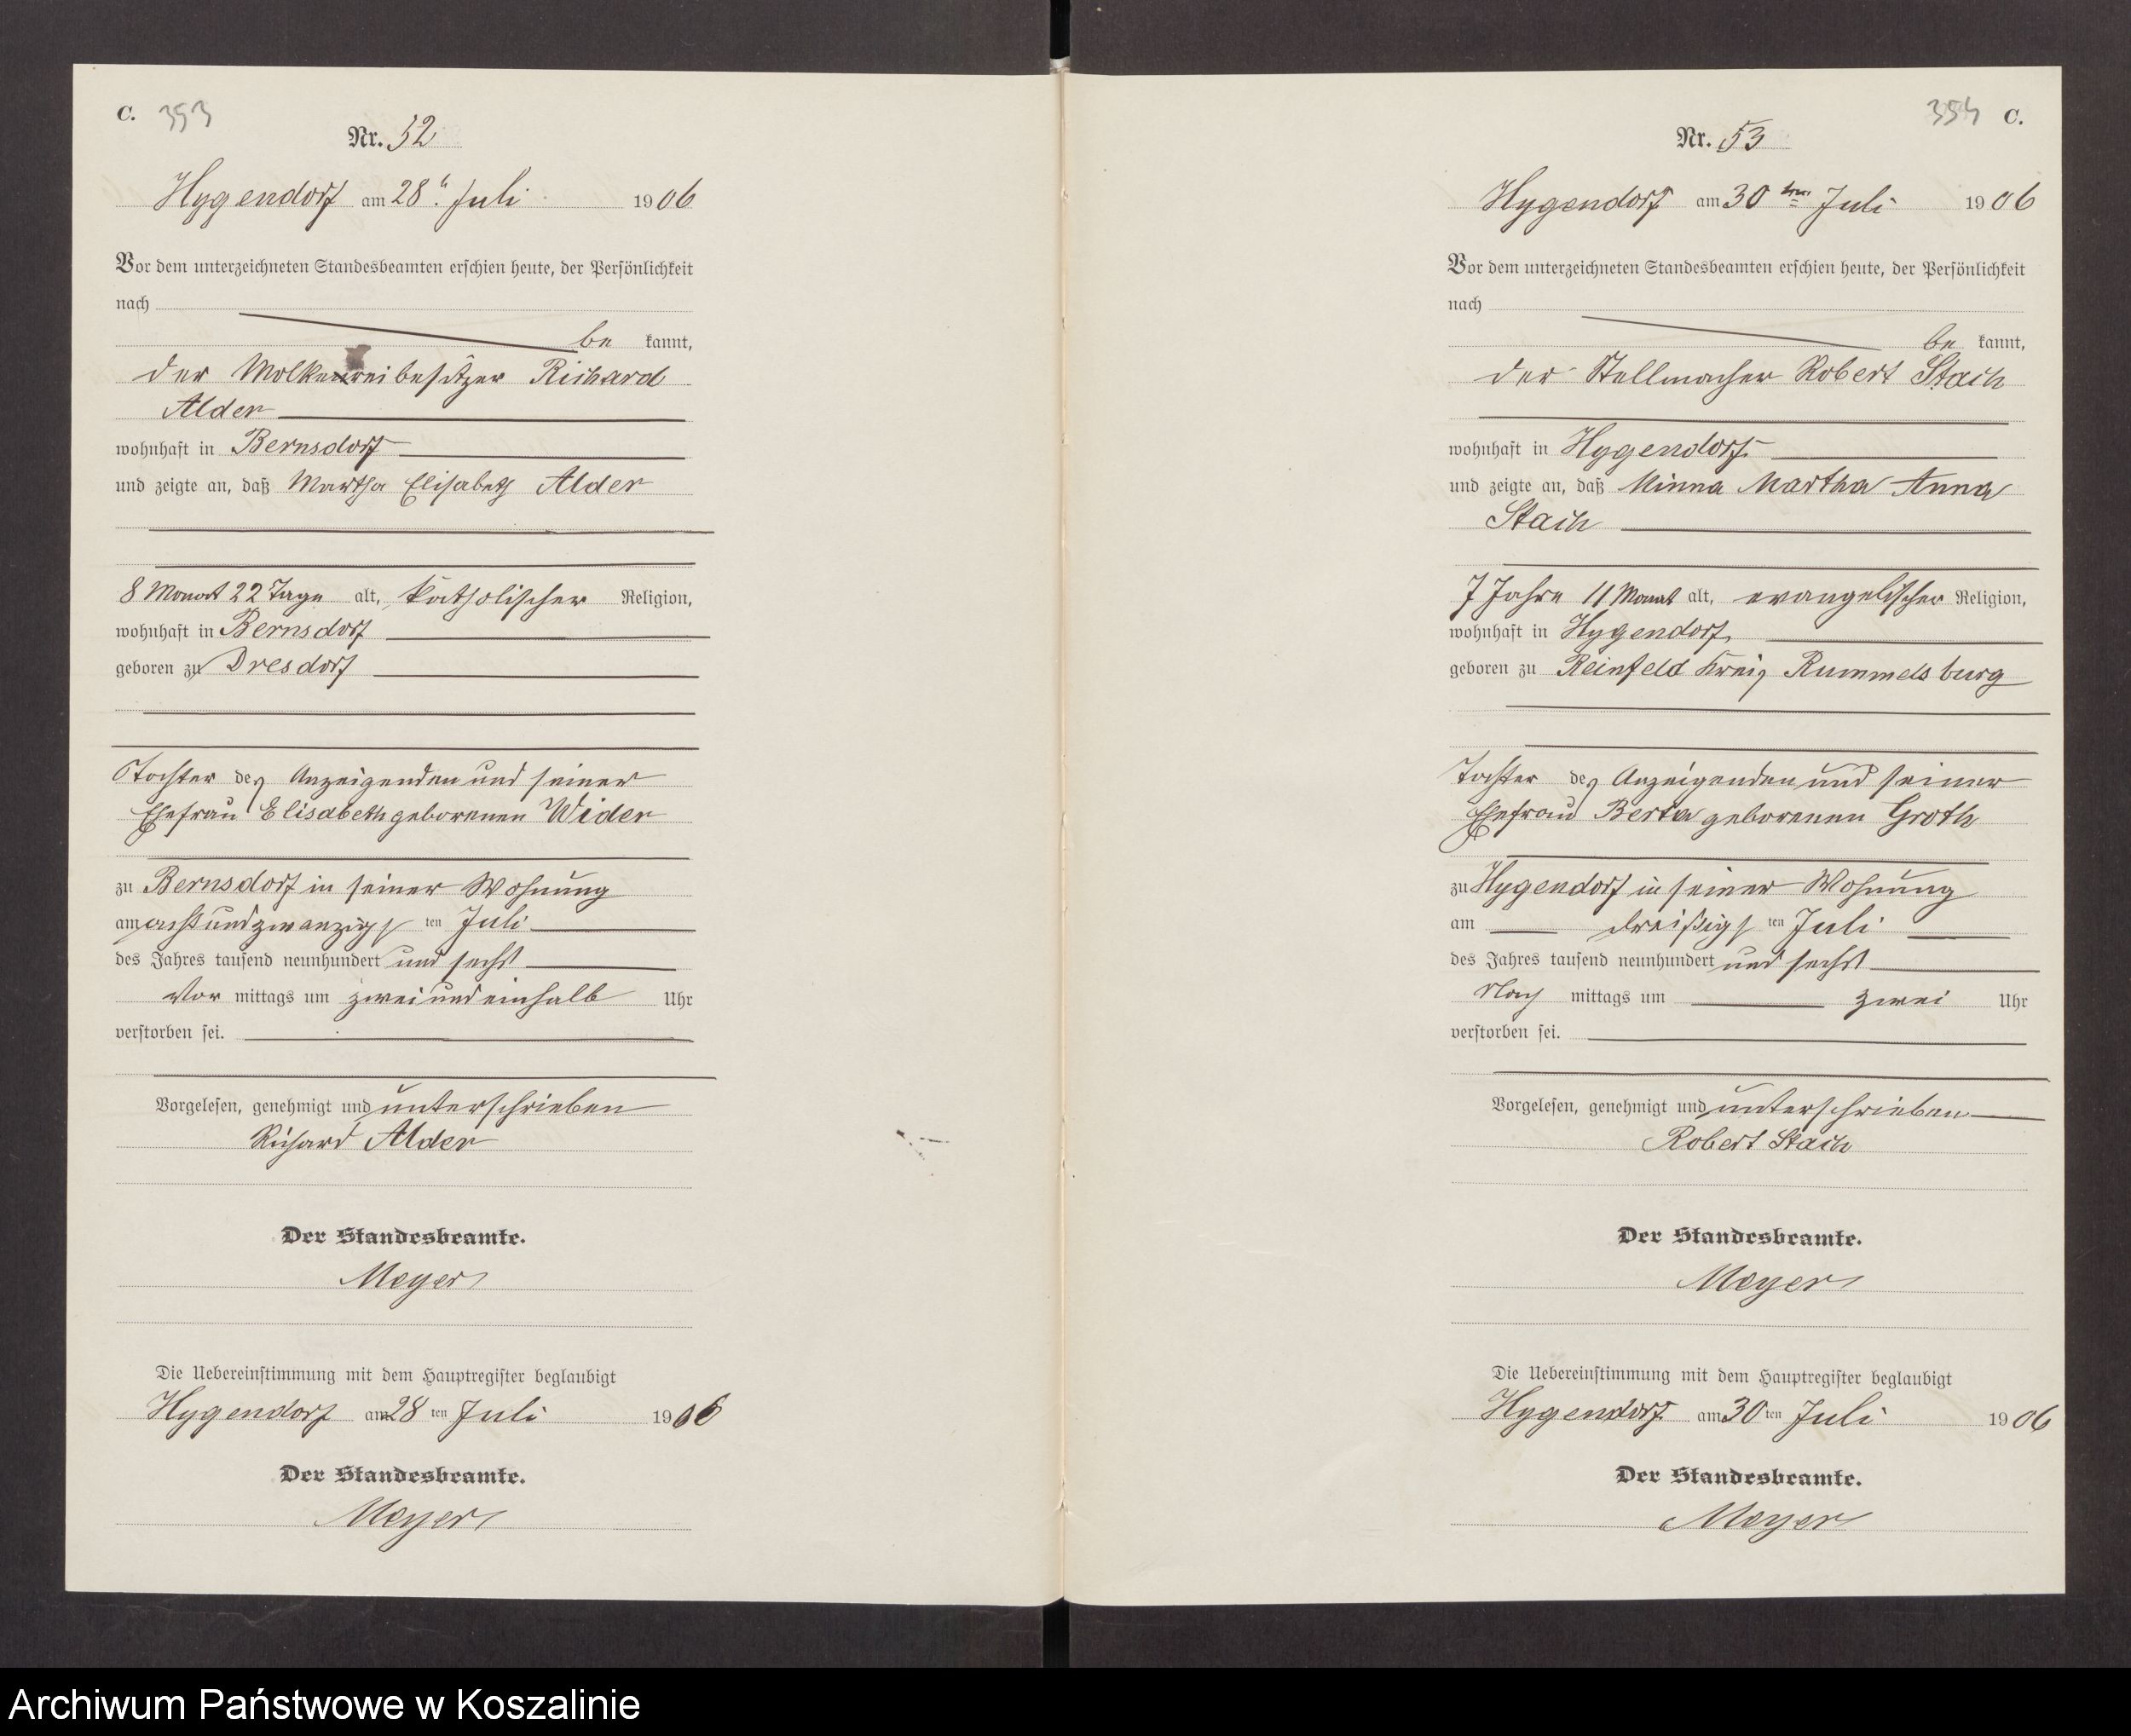 C. 353
Nr. 52
Hygendorf am 28t. Juli 1906
Vor dem unterzeichneten Standesbeamten erschien heute, der Persönlichkeit
nach
be kannt,
der Molkereibesitzer Richard
Alder
wohnhaft in Bernsdorf
und zeigte an, daß Martha Elisabeth Alder
8 Monat 22 Tage alt, katholischer Religion,
wohnhaft in Bernsdorf
geboren zu Dresdorf
Tochter des Anzeigenden und seiner
Ehefrau Elisabeth geborenen Wider
zu Bernsdorf in seiner Wohnung
am achtundzwanzigsten Juli
des Jahres tausend neunhundert und sechs
Vor mittags um zweiundeinhalb Uhr
verstorben sei.
Vorgelesen, genehmigt und unterschrieben
Richard Alder
Der Standesbeamte.
Meyer
Die Uebereinstimmung mit dem Hauptregister beglaubigt
Hygendorf am 28 ten Juli 1906
Der Standesbeamte.
Meyer
354 C.
Nr. 53
Hygendorf am 30ten Juli 1906
Vor dem unterzeichneten Standesbeamten erschien heute, der Persönlichkeit
nach
be kannt,
der Stellmacher Robert Stach
wohnhaft in Hygendorf
und zeigte an, daß Minna Martha Anna
Stach
7 Jahre 11 Monat alt, evangelischer Religion,
wohnhaft in Hygendorf
geboren zu Reinfeld Kreis Rummelsburg
Tochter des Anzeigenden und seiner
Ehefrau Berta geborenen Groth
zu Hygendorf in seiner Wohnung
am dreißigsten Juli
des Jahres tausend neunhundert und sechs
Nach mittags um zwei Uhr
verstorben sei.
Vorgelesen, genehmigt und unterschrieben
Robert Stach
Der Standesbeamte.
Meyer
Die Uebereinstimmung mit dem Hauptregister beglaubigt
Hygendorf am 30 ten Juli 1906
Der Standesbeamte.
Meyer
Archiwum Państwowe w Koszalinie